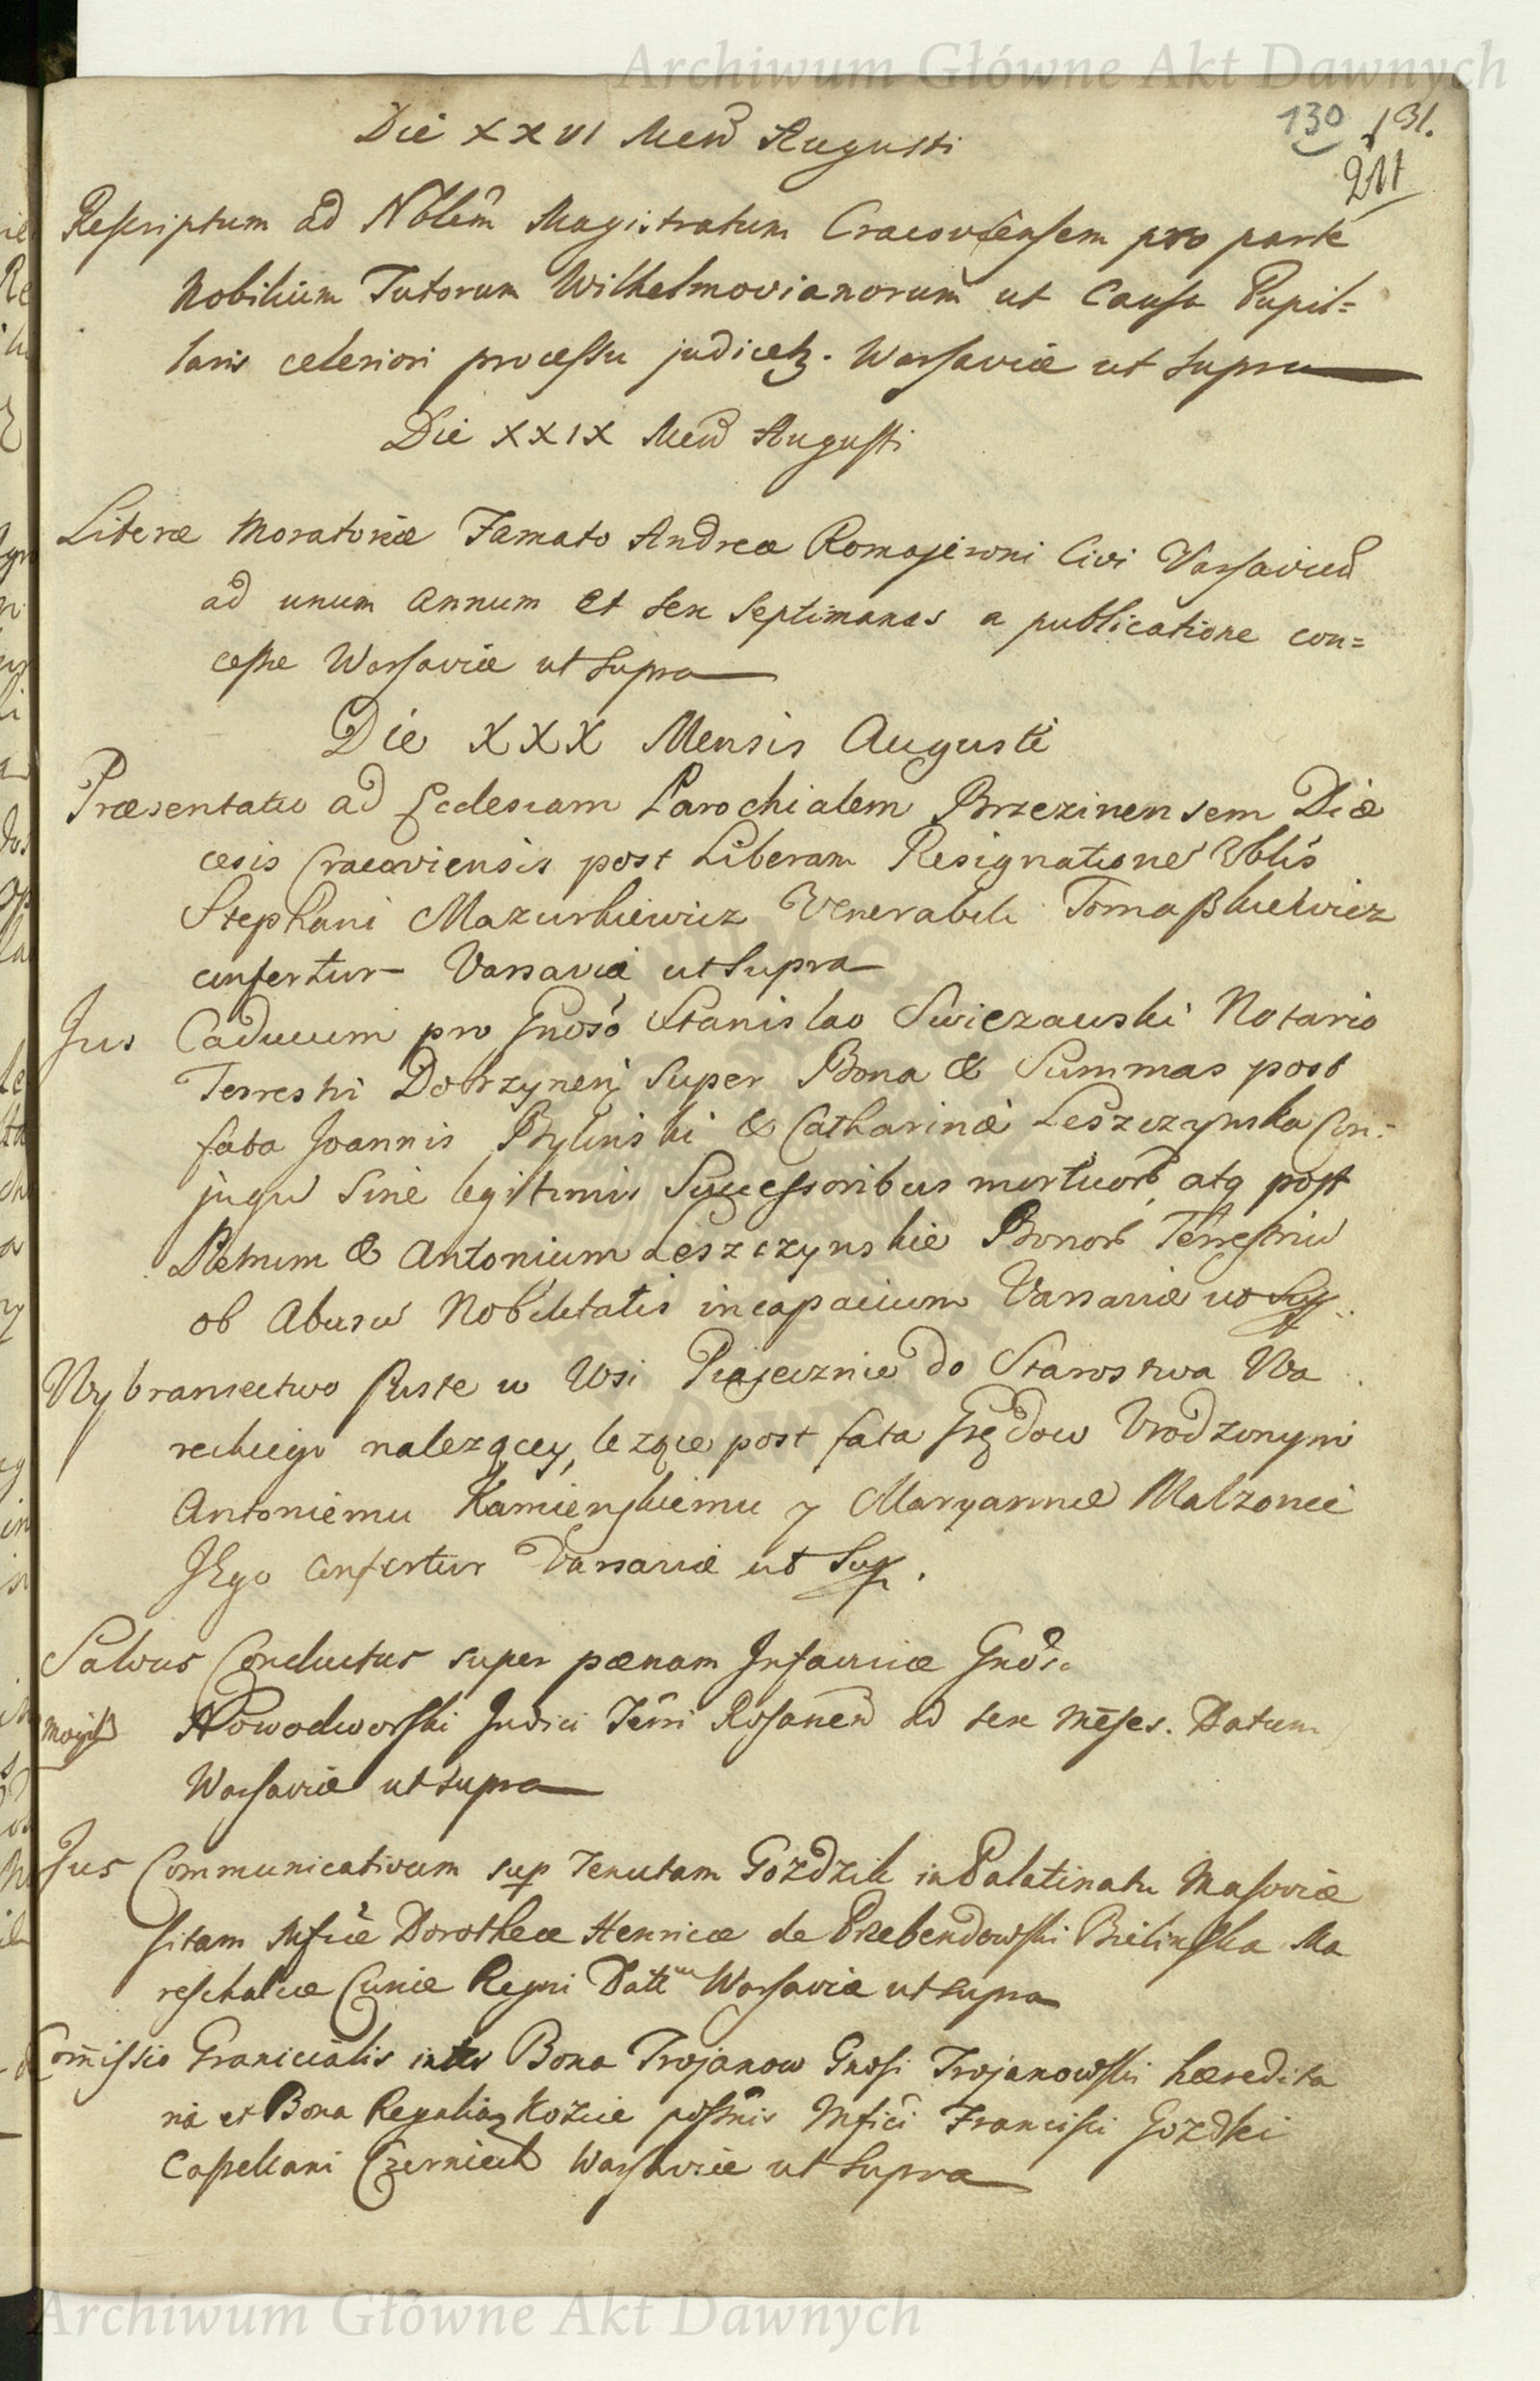 Archiwum Główne Akt Dawnych
130 131.
211
Die XXVI Mens Augusti
Rescriptum ad Nobilem Magistratum Cracoviensem pro parte
Nobilium Tutorum Wilhelmovianorum ut Causa Pupil=
laris celeriori processu judicetz. Warsaviæ ut supra
Die XXIX Mens Augusti
Literæ Moratoriæ Famato Andreæ Civi Varsavien
ad unum annum et sex septimanas a publicatione con=
cessæ Warsaviæ ut supra
Die XXX Mensis Augusti
Præsentatio ad Ecclesiam Parochialem Brzezinensem Diæ
cesis Cracoviensis post Liberam Resignatione Vblis
Stephani Mazurkiewicz Venerabili Tomaszkiewicz
confertur Varsaviæ ut supra
Jus Caducum pro Gnoso Stanislao Swiezawski Notario
Terrestri Dobrzynen super Bona & Summas post
fata Joannis Bylinski & Catharinæ Leszczynska Con=
jugu sine legitimis Successoribus mortuor atq post
Petrum & Antonium Leszczynskie Bonor Terrestriu
ob Abusu Nobilitatis incapacium Varsaviæ ut Sup.
Wybraniectwo puste w Wsi Piasecznie do Starostwa Wa
reckiego nalezącey, lezące post fata Grędow Vrodzonym
Antoniemu Kamienskiemu y Maryannie Malzonce
Jego confertur Varsaviæ ut Sup.
Salvus Conductus super pænam Infamiæ Gnos.
Nowodworski Judici Terri Rosanen ad sex Meses. Datum
Warsaviæ ut supra
Jus Communicativum sup Tenutam Gozdzik in Palatinatu Masoviæ
sitam Mficæ Dorotheæ Henricæ de Przebendowski Bielinska Ma
reschalcæ Curiæ Regni Dattm Warsaviæ ut supra
Commissio Granicialis inter Bona Trojanow Gnosi Trojanowski hæredita
ria et Bona Regalia Kozice possnis Mfici Francisci Gozdski
Castellani Czerniech Warsaviæ ut supra
Archiwum Główne Akt Dawnych